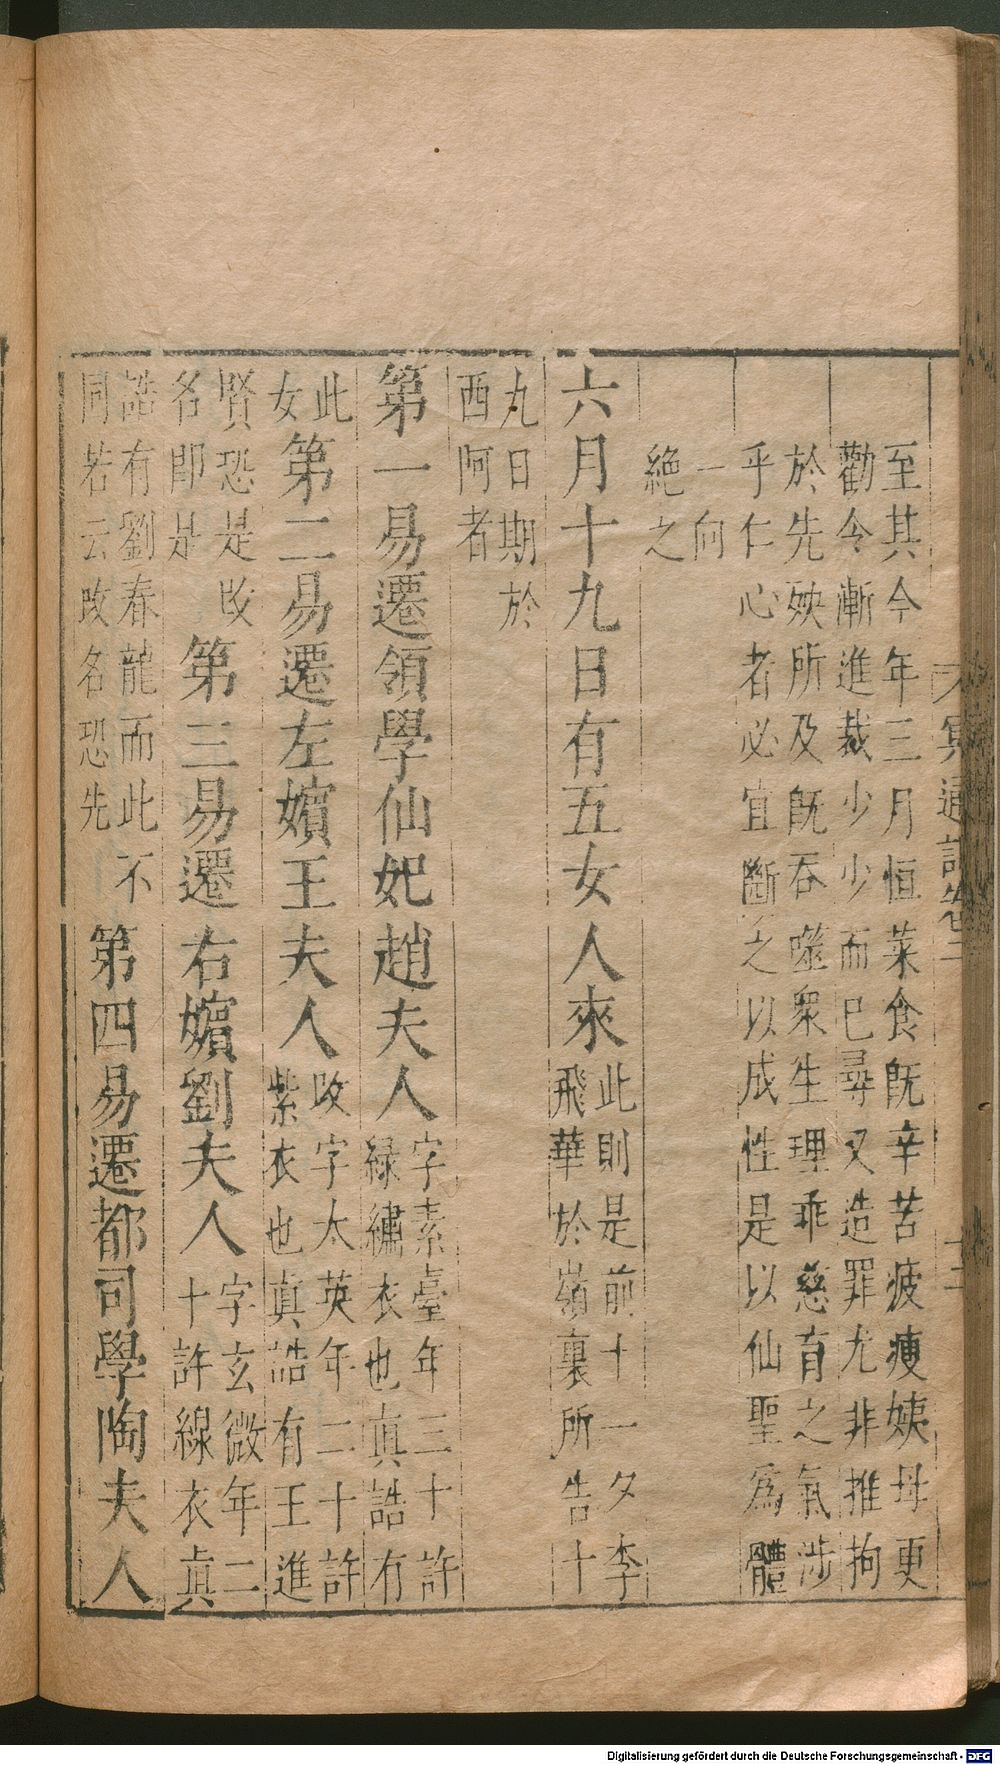 冥通記卷二
至其今年三月恒菜食旣辛苦疲瘦姨母更
勸令漸進裁少少而已尋又造罪尤非推拘
於先殃所及旣吞噬衆生理乖慈育之氣涉
乎仁心者必宜斷之以成性是以仙聖爲體
一向
絶之
六月十九日有五女人來
此則是前十一夕李
飛華於嶺裏所告十
九日期於
酉阿者
第一易遷領學仙妃趙夫人
字素臺年三十許
緑繡衣也眞誥有
此
女
第二易遷左嬪王夫人
改字太英年二十許
紫衣也眞誥有王進
賢恐是改
名即是
第三易遷右嬪劉夫人
字玄微年二
十許線衣眞
誥有劉春龍而此不
同若云改名恐先
第四易遷都司學陶夫人
Digitalisierung gefördert durch die Deutsche Forschungsgemeinschaft - DFG